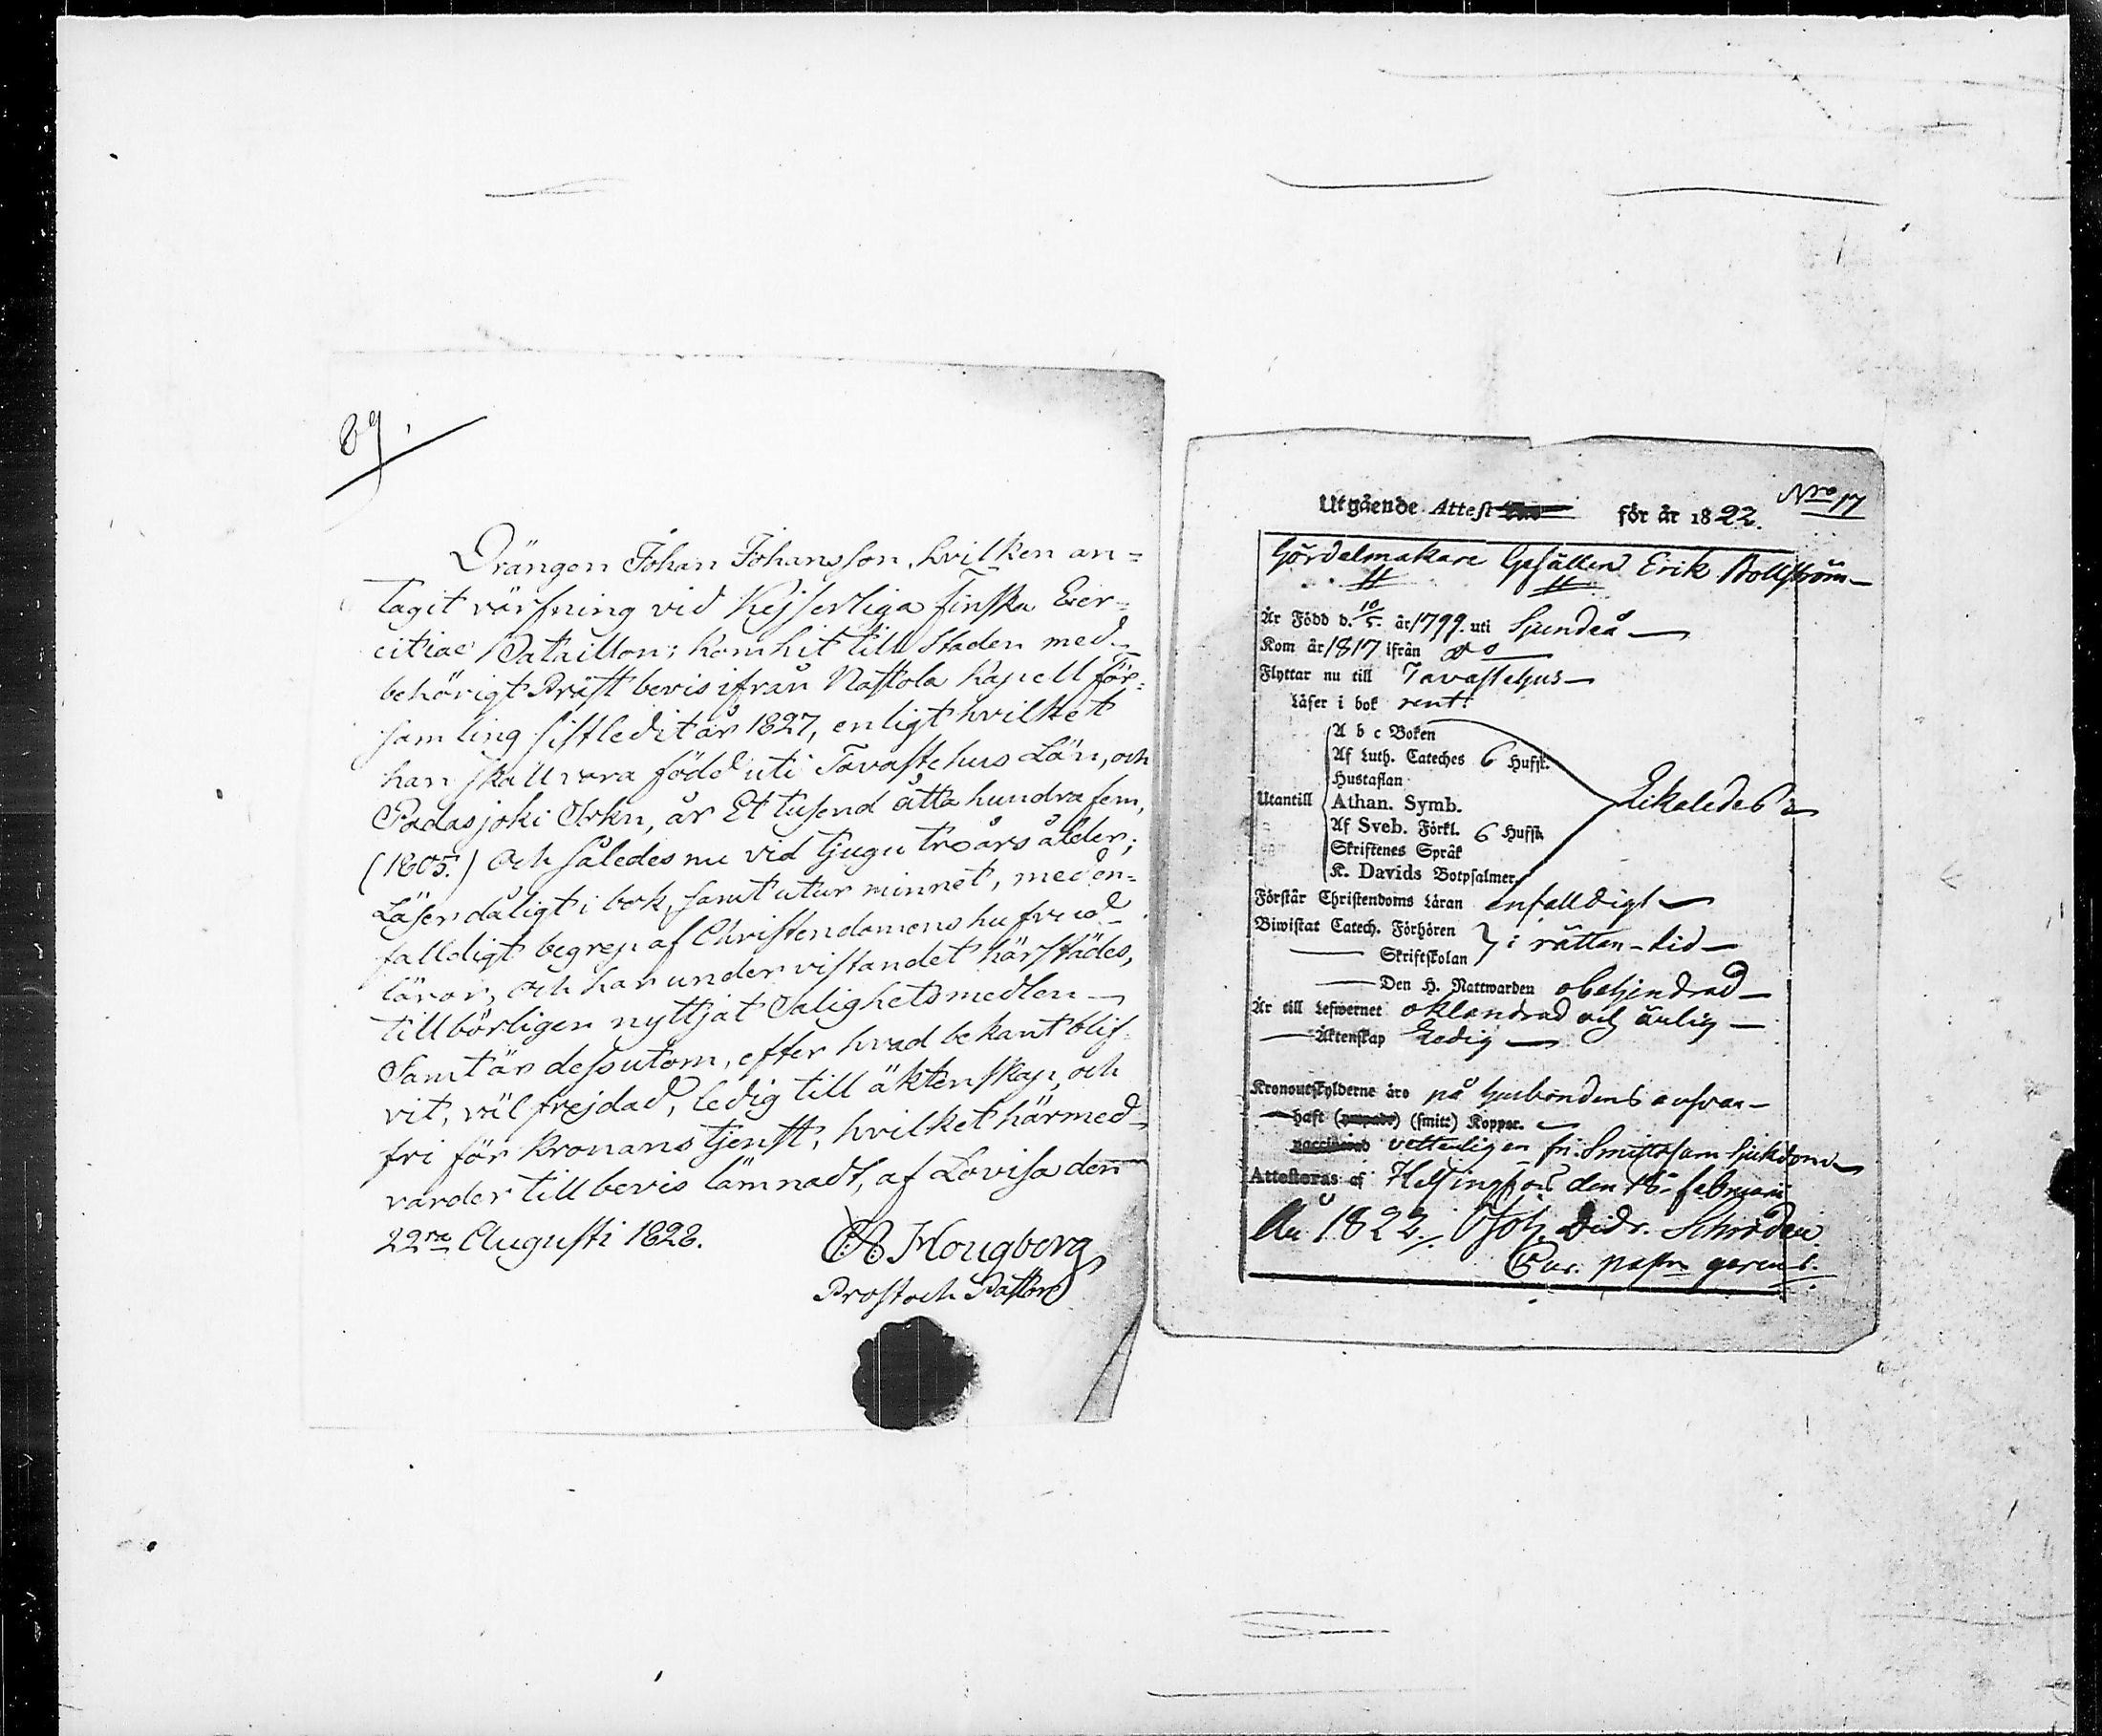 89.
Drängen Johan Johansson, hvilken an=
tagit värfning vid Kejserliga Finska Exer=
citiae Bataillon; kom hit till Staden med
behörigt Präst bevis ifrån Nastola Kapell för=
samling sistledit år 1827, enligt hvilket
han skall vara född uti Tavastehus Län, och
Padasjoki Sokn, år Et tusend åtta hundra fem,
(1805.) och således nu vid tjugu tre års ålder;
Läser dåligt i bok, samt utur minnet, med en=
falldigt begrep af Christendomens hufvud
läror, och har under vistandet härstädes,
tillbörligen nyttjat Salighetsmedlen
Samt är dessutom, efter hvad bekant blif=
vit, väl frejdad, ledig till äktenskap, och
fri för Kronans tjenst; hvilket härmed
varder till bevis lämnadt, af Lovisa den
22ra Augusti 1828.
Hougberg
Prost och Pastor
Nro 17
Utgående Attest för år 1822.
Gördelmakare Gesällen Erik
Är Född d. 10/5. år 1799. uti Sjundeå
Kom år 1817 ifrån do
Flyttar nu till Tavastehus
Läser i bok rent:
A b c Boken
Af Luth. Cateches 6 Hufst.
Hustaflan
Utantill Athan. Symb. Likaledes
Af Sveb. Förkl. 6 Hufst.
Skriftenes Språk
K. Davids Botpsalmer
Förstår Christendoms Läran enfalldigt
Biwistat Catech. Förhören } i rättan tid
Skriftskolan
Den H. Nattwarden obehindrad
Är till Lefwernet oklandrad och ärlig
Äktenskap Ledig
Kronoutskylderne äro på husbondens ansvar
haft (smitt) Koppor.
vetterligen fri Smittosam Sjukdom
Attesteras af Helsingfors den 18 februarii
År 1822. Joh. Didr. Schröder
past. gerens.